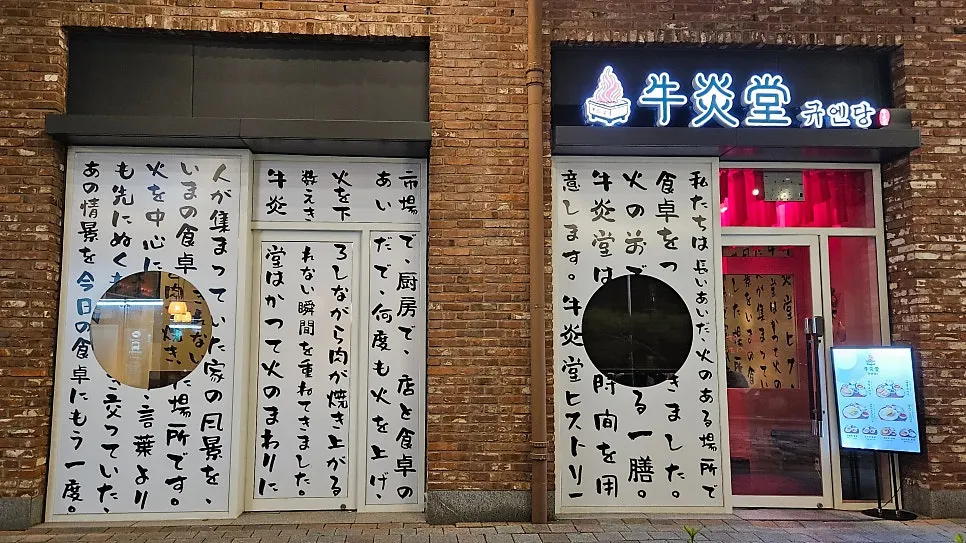 牛炎堂 규엔당
私たちは長いあいだ、火のある場所で
食卓をつ きました。
火の前で る一膳。
牛炎堂は 時間を用
意します。牛炎堂ヒストリー
市場で、厨房で、店と食卓の
あいだで、何度も火を上げ、
火を下ろしながら肉が焼き上がる
数えきれない瞬間を重ねてきました。
牛炎堂はかつて火のまわりに
人が集まっていた家の風景を、
いまの食卓 た場所です。
火を中心に 言葉より
も先にぬく き交っていた、
あの情景を今日の食卓にもう一度。
牛炎堂